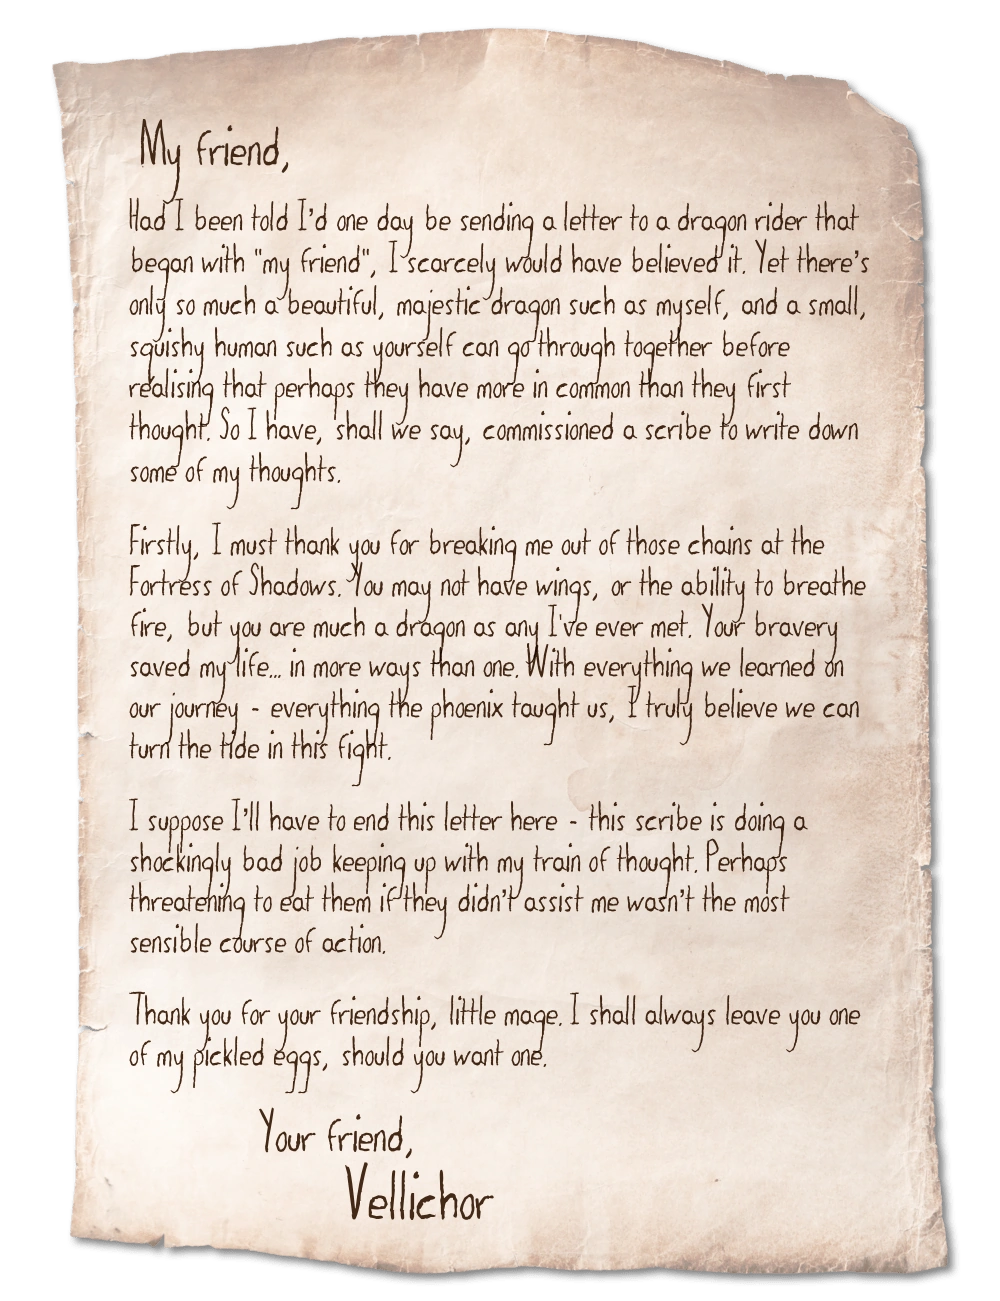 My friend,
Had I been told I'd one day be sending a letter to a dragon rider that
began with "my friend", I scarcely would have believed it. Yet there's
only so much a beautiful, majestic dragon such as myself, and a small,
squishy human such as yourself can go through together before
realising that perhaps they have more in common than they first
thought. So I have, shall we say, commissioned a scribe to write down
some of my thoughts.
Firstly, I must thank you for breaking me out of those chains at the
Fortress of Shadows. You may not have wings, or the ability to breathe
fire, but you are much a dragon as any I've ever met. Your bravery
saved my life... in more ways than one. With everything we learned on
our journey - everything the phoenix taught us, I truly believe we can
turn the tide in this fight.
I suppose I'll have to end this letter here - this scribe is doing a
shockingly bad job keeping up with my train of thought. Perhaps
threatening to eat them if they didn't assist me wasn't the most
sensible course of action.
Thank you for your friendship, little mage. I shall always leave you one
of my pickled eggs, should you want one.
Your friend,
Vellichor